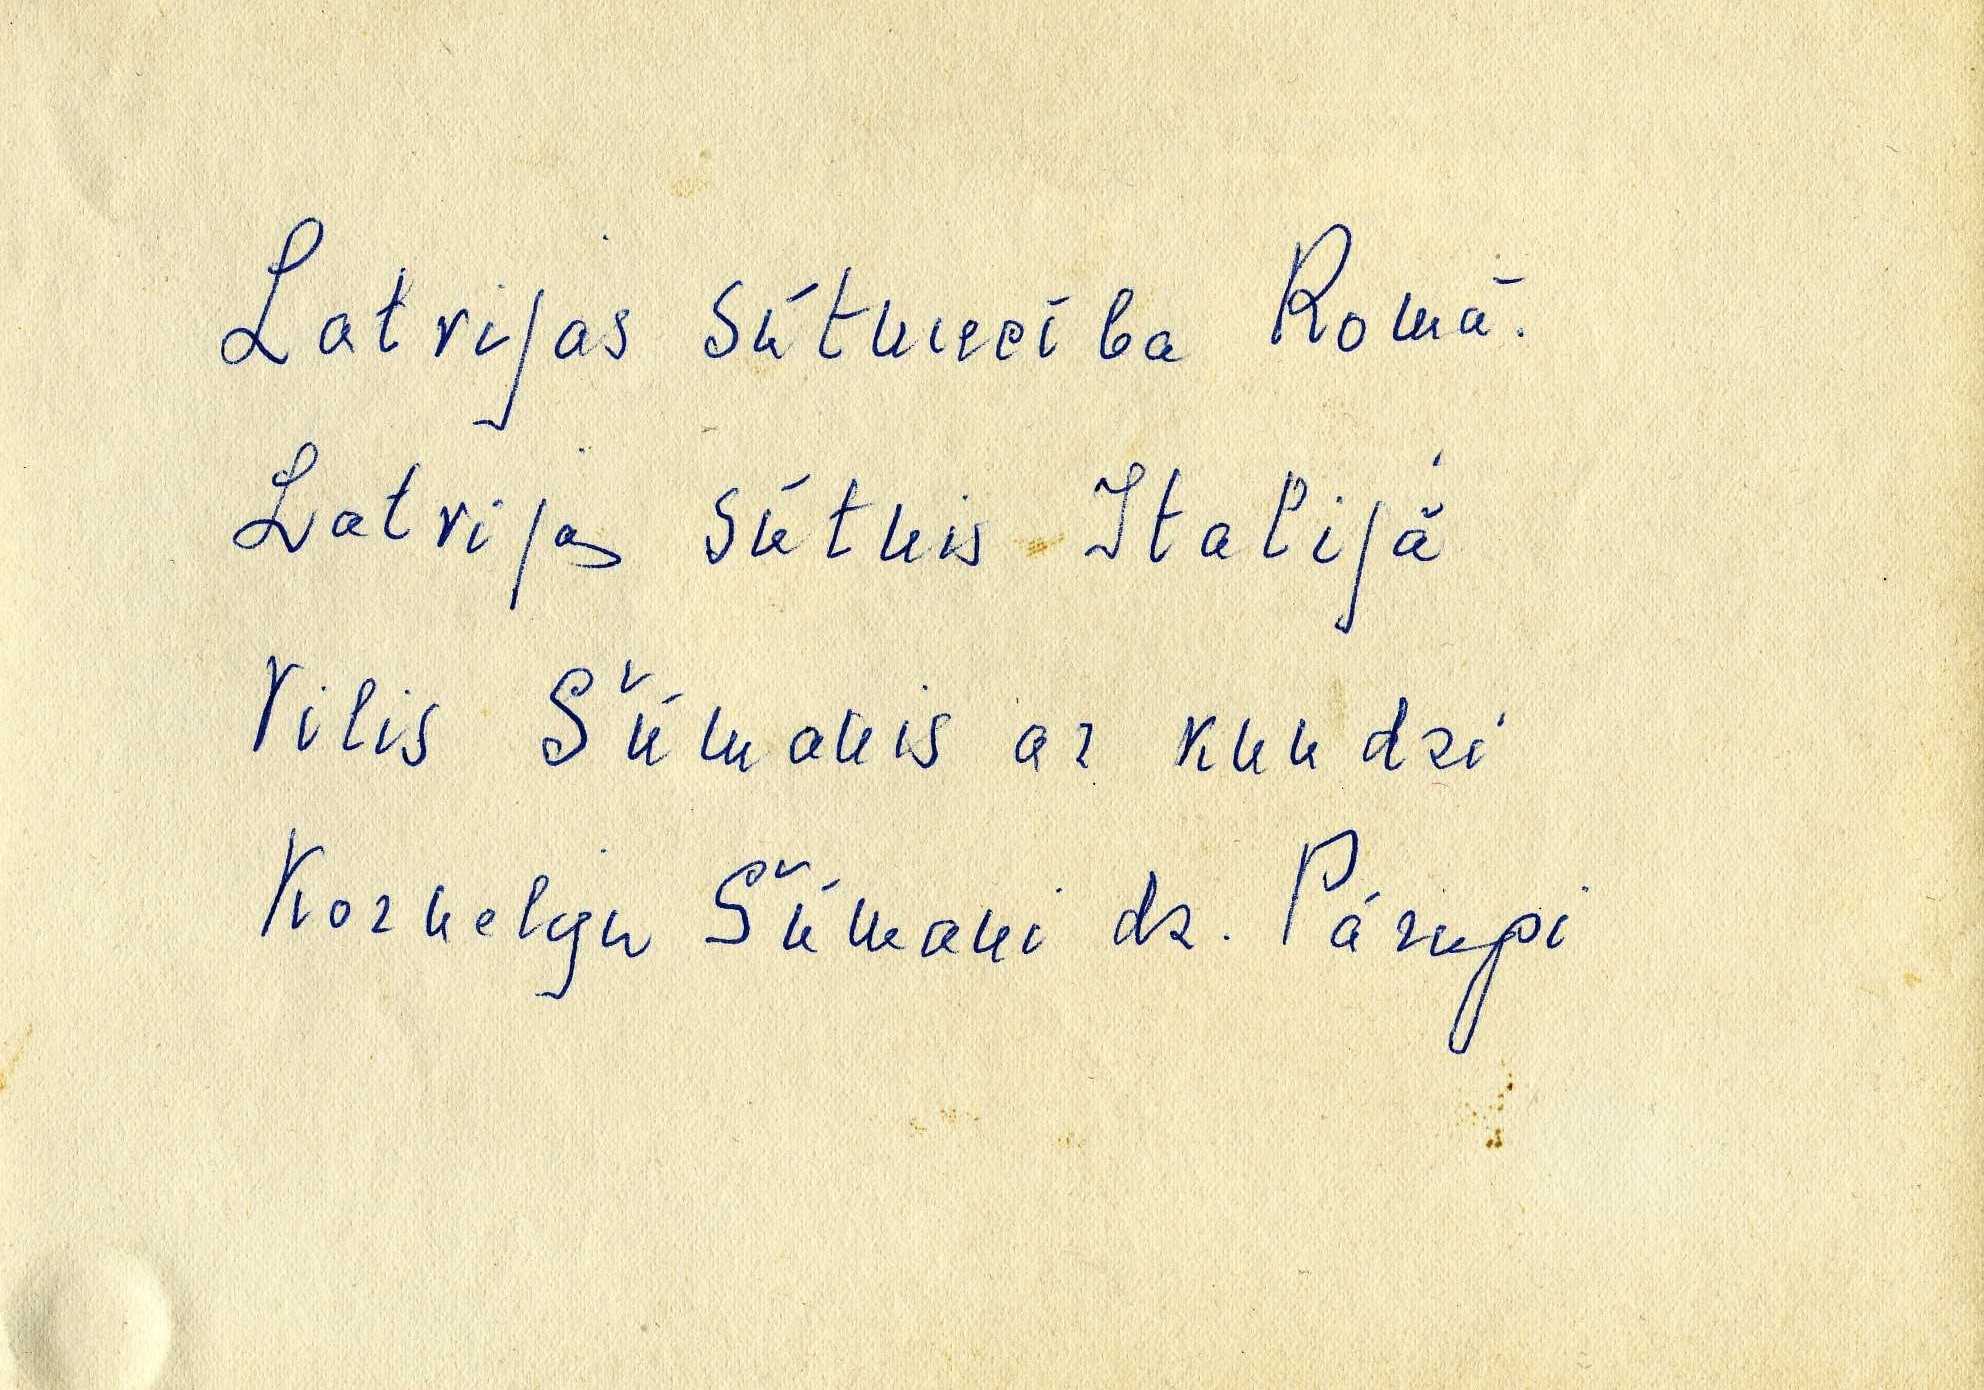 Latvijas sūtniecība Romā.
Latvijas sūtnis Itālijā
Vilis Šūmanis ar kundzi
Kornelju Šūmani dz. Pārupi